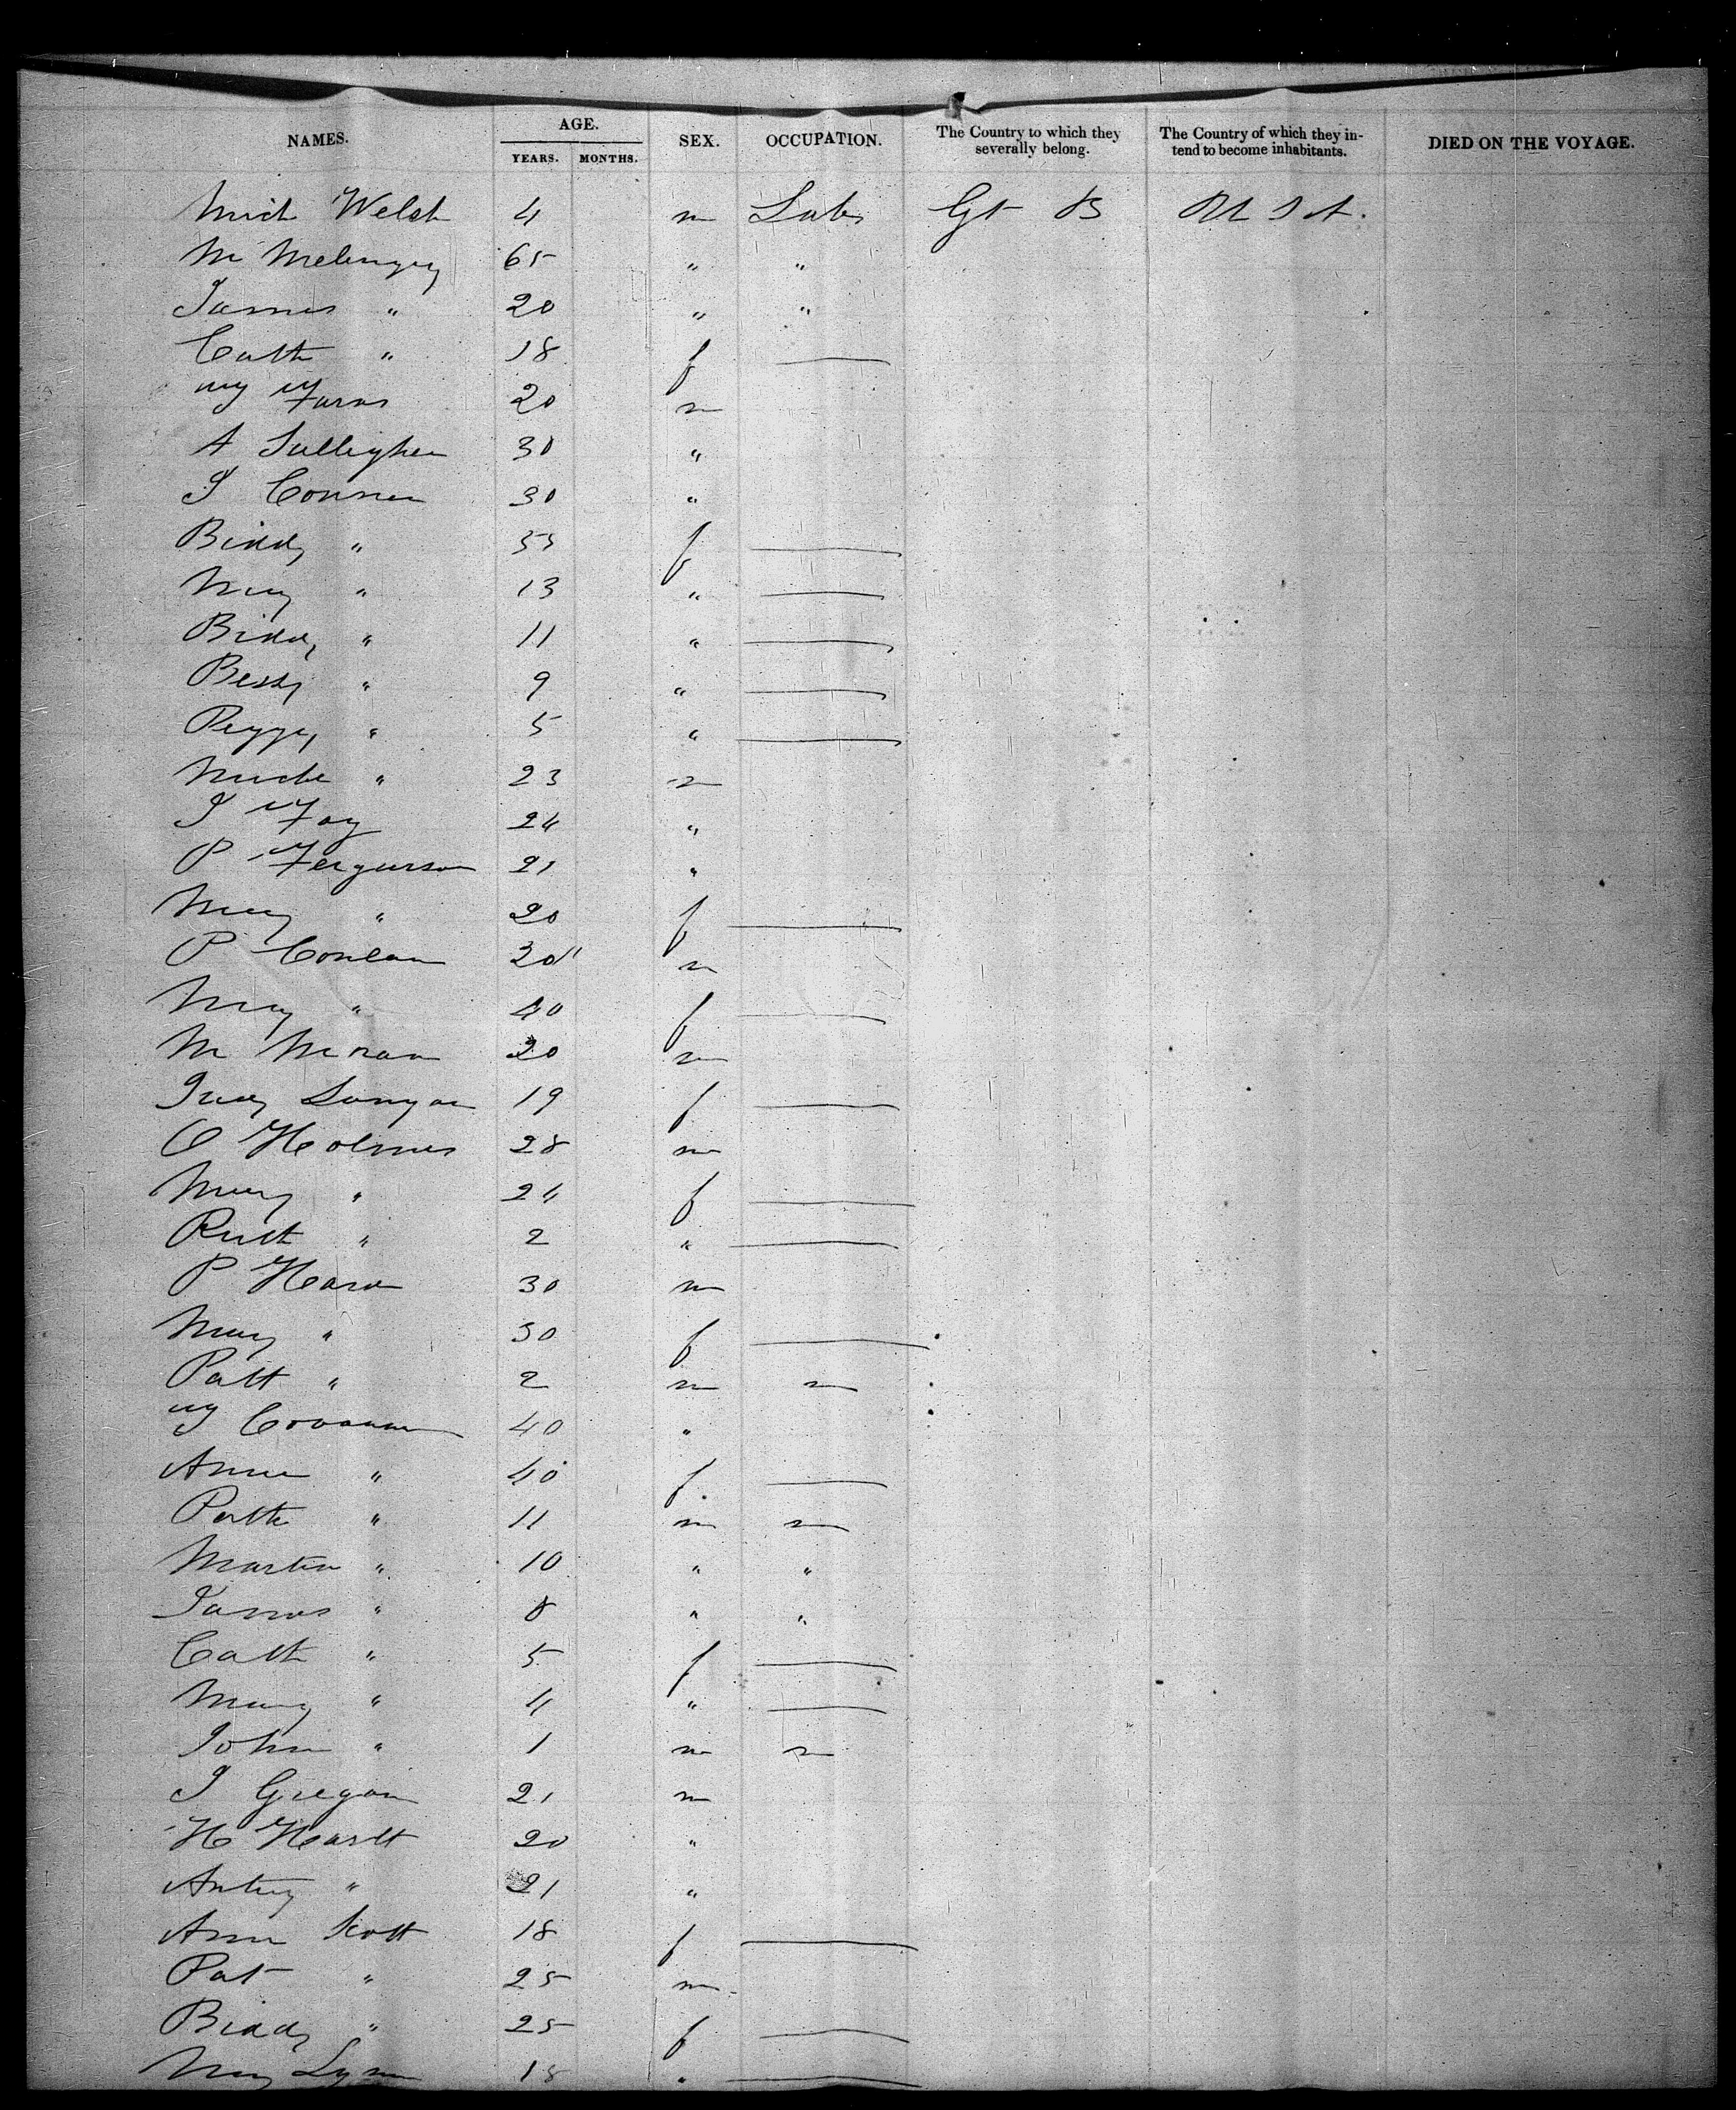 NAMES. AGE. SEX. OCCUPATION. The Country to which they severally belong. The Country of which they intend to become inhabitants. DIED ON THE VOYAGE.
YEARS. MONTHS.
Mich Welsh 4 m Labr Gt B U S A.
M 65 " "
James " 20 " "
Cath " 18 f —
20 m
A 30 "
J Conner 30 "
Biddy " 35 f —
Mary " 13 " —
Biddy " 11 " —
Bessy " 9 " —
Peggy " 5 " —
Mich " 23 m
J Foy 24 "
P Fergurson 21 "
Mary " 20 f —
P Conlan 30 m
Mary " 40 f —
M Moran 20 m
Judy 19 f —
O Holmes 28 m
Mary " 24 f —
Ruth " 2 " —
P 30 m
Mary " 30 f —
Patt " 2 m m
40 "
Anne " 40 f —
Patk " 11 m m
Martin " 10 " "
James " 8 " "
Cath " 5 f —
Mary " 4 " —
John " 1 m m
J 21 m
H 20 "
Antny " 21 "
Ann Scott 18 f —
Pat " 25 m
Biddy " 25 f —
Mary Lynn 18 " —